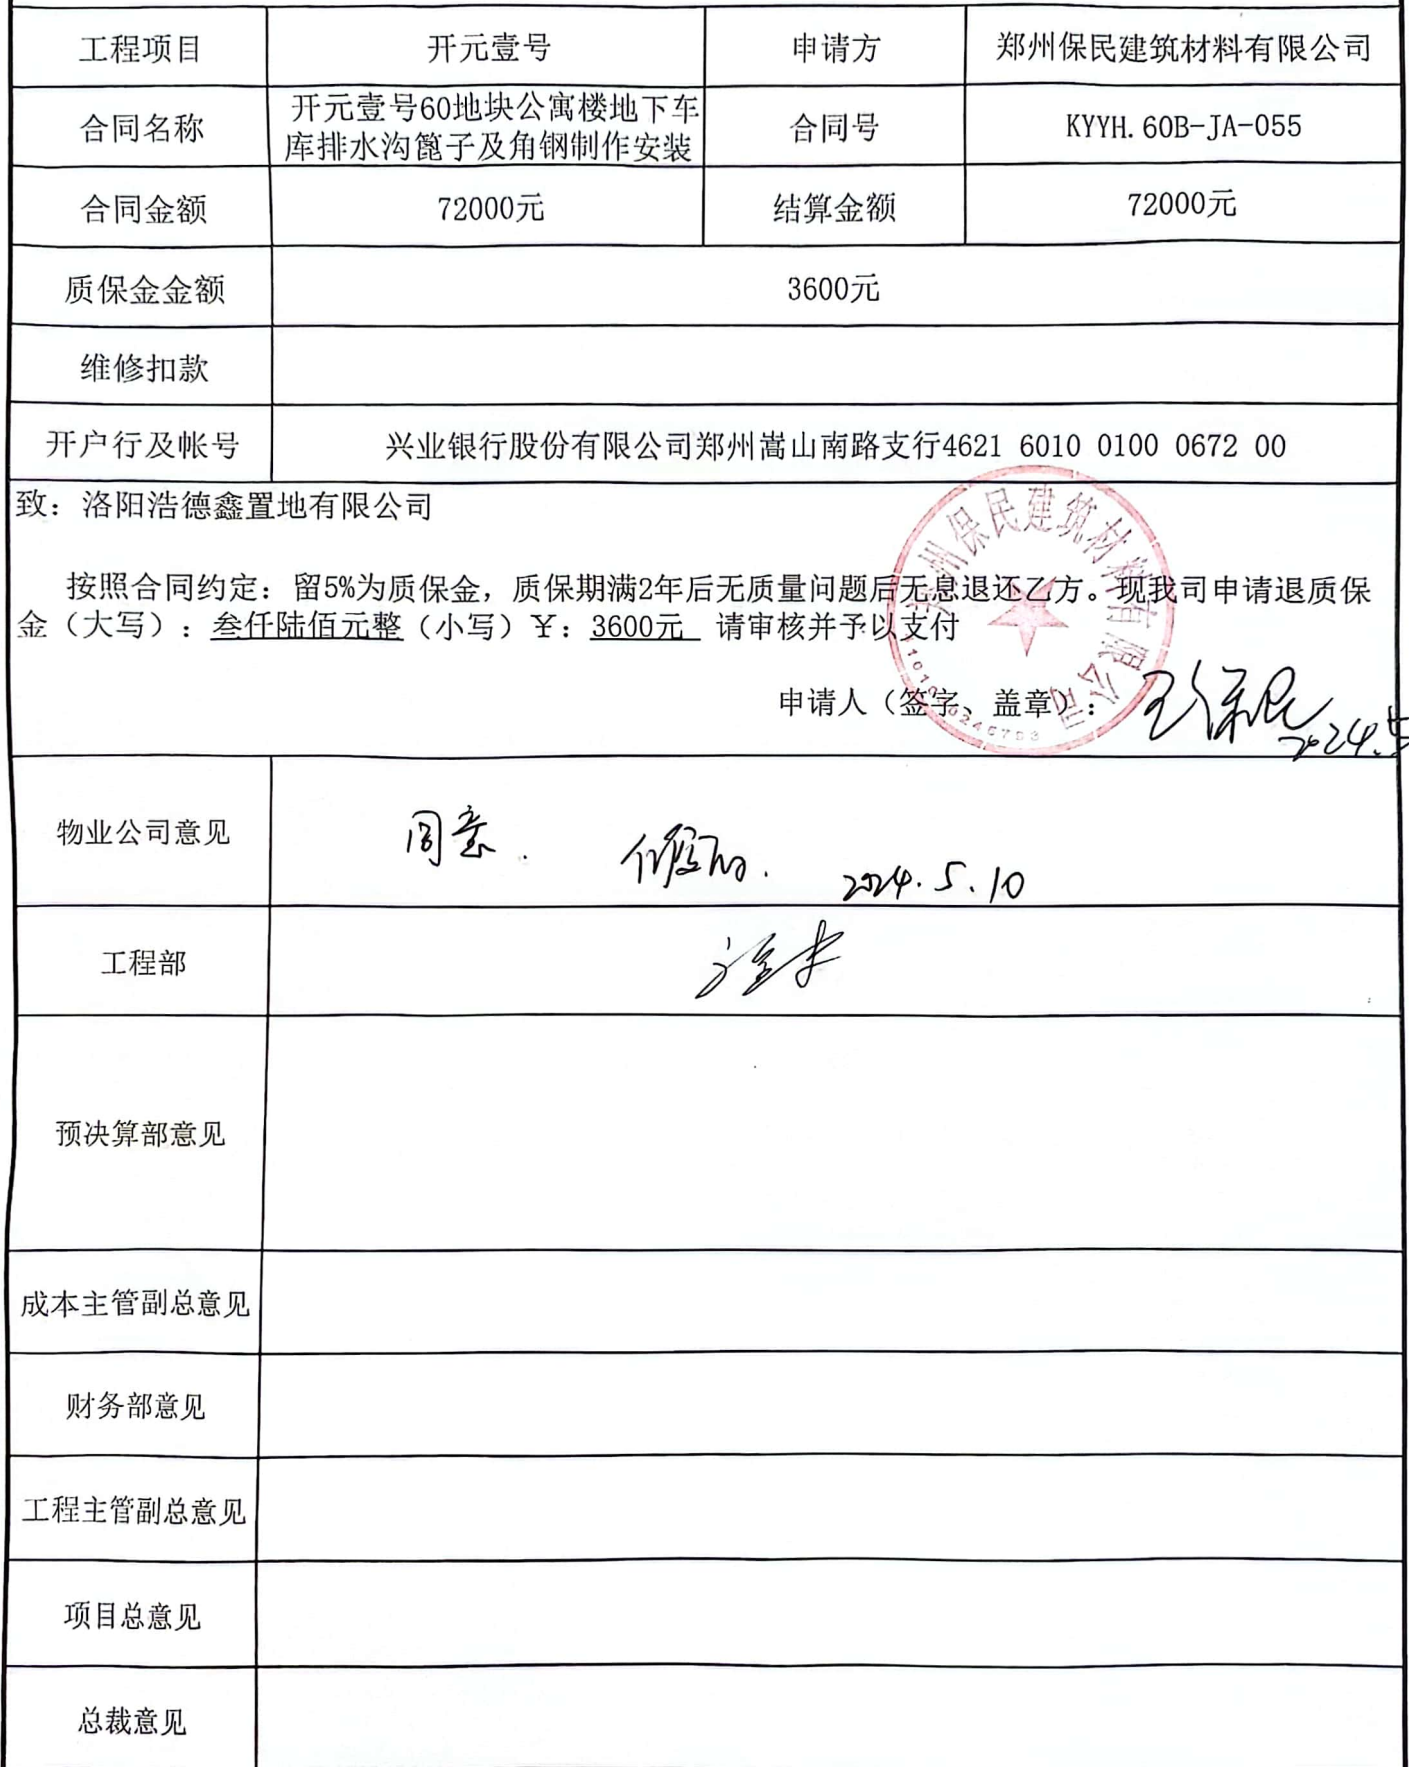 工程项目 开元壹号 申请方 郑州保民建筑材料有限公司
合同名称 开元壹号60地块公寓楼地下车
库排水沟篦子及角钢制作安装 合同号 KYYH.60B-JA-055
合同金额 72000元 结算金额 72000元
质保金金额 3600元
维修扣款
开户行及帐号 兴业银行股份有限公司郑州嵩山南路支行4621 6010 0100 0672 00
致：洛阳浩德鑫置地有限公司
按照合同约定：留5%为质保金，质保期满2年后无质量问题后无息退还乙方。现我司申请退质保
金（大写）：叁仟陆佰元整（小写）￥：3600元 请审核并予以支付
州保民建筑材料有限公司
申请人（签字、盖章）： 王保民
2024.5
物业公司意见 同意. 2024.5.10
工程部
预决算部意见
成本主管副总意见
财务部意见
工程主管副总意见
项目总意见
总裁意见